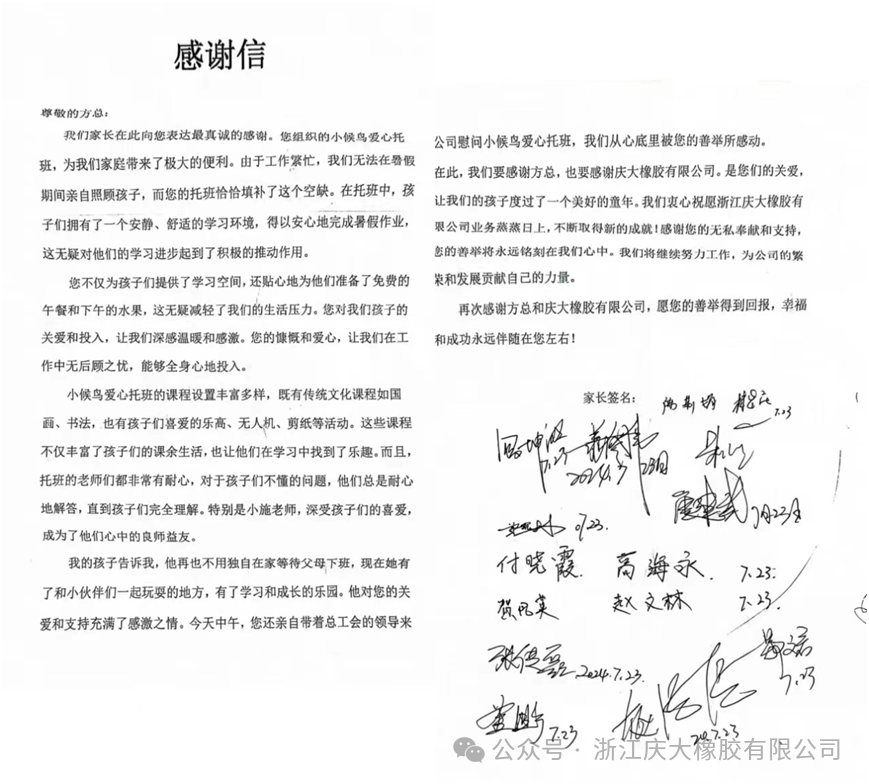 感谢信
尊敬的方总：
我们家长在此向您表达最真诚的感谢。您组织的小候鸟爱心托
班，为我们家庭带来了极大的便利。由于工作繁忙，我们无法在暑假
期间亲自照顾孩子，而您的托班恰恰填补了这个空缺。在托班中，孩
子们拥有了一个安静、舒适的学习环境，得以安心地完成暑假作业，
这无疑对他们的学习进步起到了积极的推动作用。
您不仅为孩子们提供了学习空间，还贴心地为他们准备了免费的
午餐和下午的水果，这无疑减轻了我们的生活压力。您对我们孩子的
关爱和投入，让我们深感温暖和感激。您的慷慨和爱心，让我们在工
作中无后顾之忧，能够全身心地投入。
小候鸟爱心托班的课程设置丰富多样，既有传统文化课程如国
画、书法，也有孩子们喜爱的乐高、无人机、剪纸等活动。这些课程
不仅丰富了孩子们的课余生活，也让他们在学习中找到了乐趣。而且，
托班的老师们都非常有耐心，对于孩子们不懂的问题，他们总是耐心
地解答，直到孩子们完全理解。特别是小施老师，深受孩子们的喜爱，
成为了他们心中的良师益友。
我的孩子告诉我，他再也不用独自在家等待父母下班，现在她有
了和小伙伴们一起玩耍的地方，有了学习和成长的乐园。他对您的关
爱和支持充满了感激之情。今天中午，您还亲自带着总工会的领导来
公司慰问小候鸟爱心托班，我们从心底里被您的善举所感动。
在此，我们要感谢方总，也要感谢庆大橡胶有限公司。是您们的关爱，
让我们的孩子度过了一个美好的童年。我们衷心祝愿浙江庆大橡胶有
限公司业务蒸蒸日上，不断取得新的成就！感谢您的无私奉献和支持，
您的善举将永远铭刻在我们心中。我们将继续努力工作，为公司的繁
荣和发展贡献自己的力量。
再次感谢方总和庆大橡胶有限公司，愿您的善举得到回报，幸福
和成功永远伴随在您左右！
家长签名：
7.23
7.23 2024.7 23日
7月23日
7.23.
付晓霞 高海永. 7.23.
贺凤英 赵文林 7.23.
2024.7.23.
7.23
7.23
公众号·浙江庆大橡胶有限公司